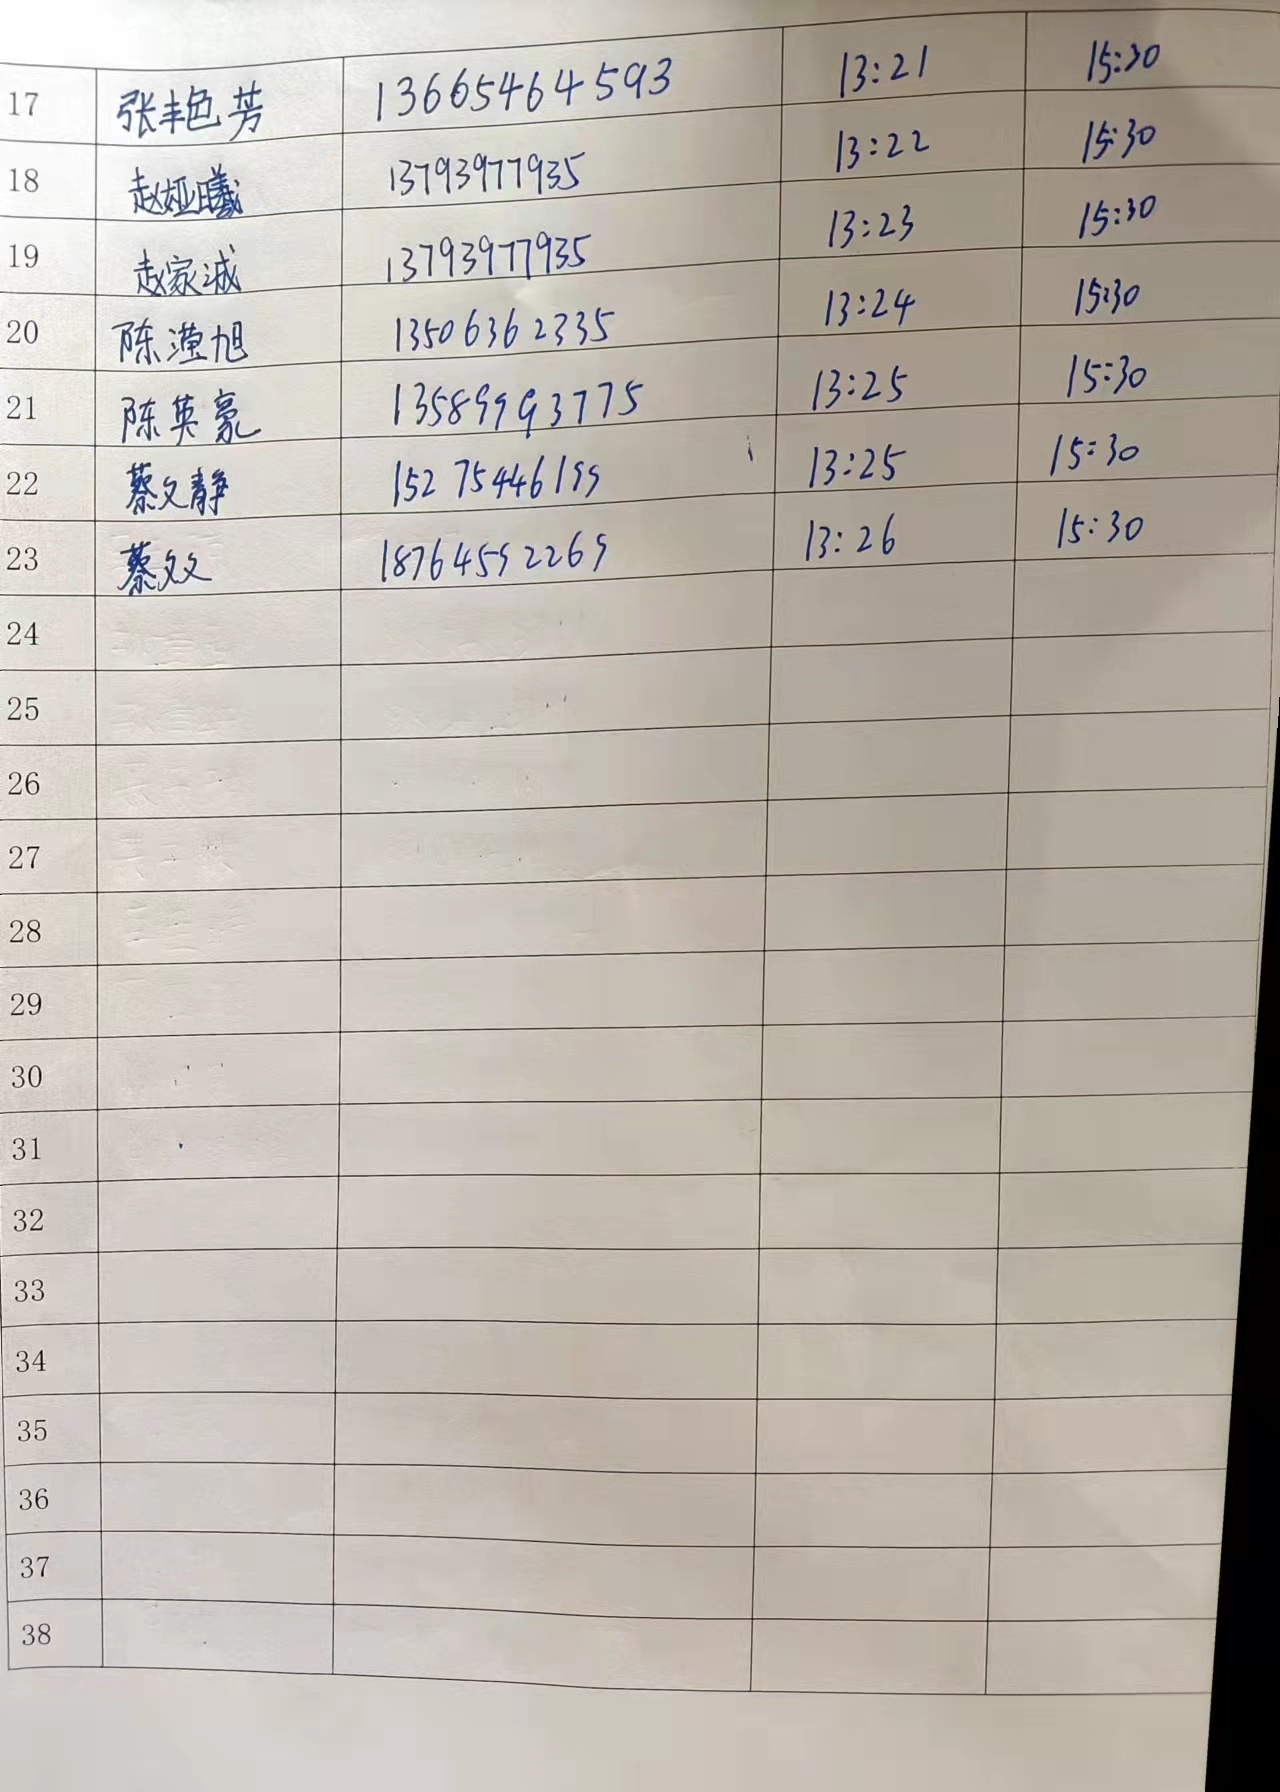 17 张艳芳 13665464593 13:21 15:30
18 赵娅曦 13793977935 13:22 15:30
19 赵家诚 13793977935 13:23 15:30
20 陈滢旭 13506362335 13:24 15:30
21 陈英豪 13589993775 13:25 15:30
22 蔡文静 15275446199 13:25 15:30
23 蔡文文 18764592269 13:26 15:30
24
25
26
27
28
29
30
31
32
33
34
35
36
37
38